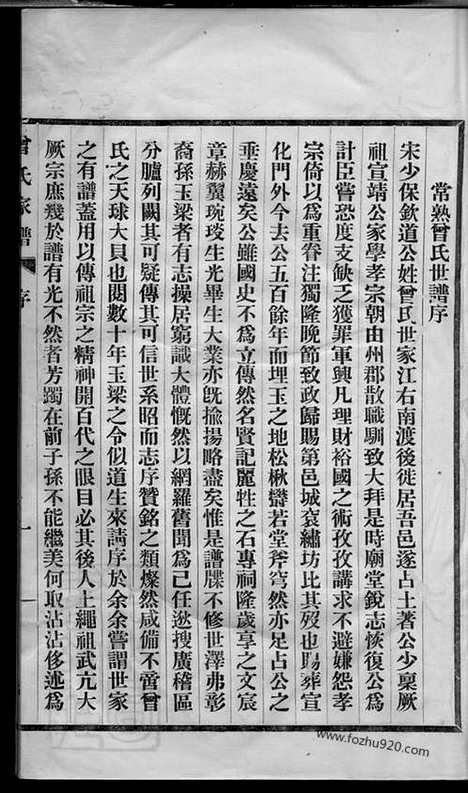 常熟曾氏世譜序
宋少保欽道公姓曾氏世家江右南渡後徙居吾邑遂占土著公少稟厥
祖宣靖公家學孝宗朝由州郡散職馴致大拜是時廟堂銳志恢復公為
計臣嘗恐度支缺乏獲罪軍興凡理財裕國之術孜孜講求不避嫌怨孝
宗倚以為重眷注獨隆晚節致政歸賜第邑城袞繡坊比其歿也賜葬宣
化門外今去公五百餘年而埋玉之地松楸鬱若堂斧穹然亦足占公之
垂慶遠矣公雖國史不為立傳然名賢記麗牲之石專祠隆歲享之文宸
章赫翼琬琰生光畢生大業亦旣揄揚略盡矣惟是譜牒不修世澤弗彰
裔孫玉梁者有志操居窮識大體慨然以網羅舊聞為己任逖搜廣稽區
分臚列闕其可疑傳其可信世系昭而志序贊銘之類燦然咸備不啻曾
氏之天球大貝也閱數十年玉梁之令似道生來請序於余余嘗謂世家
之有譜蓋用以傳祖宗之精神開百代之眼目必其後人上繩祖武亢大
厥宗庶幾於譜有光不然者芳躅在前子孫不能繼美何取沾沾侈述為
曾氏家譜 序 一
www.fozhu920.com